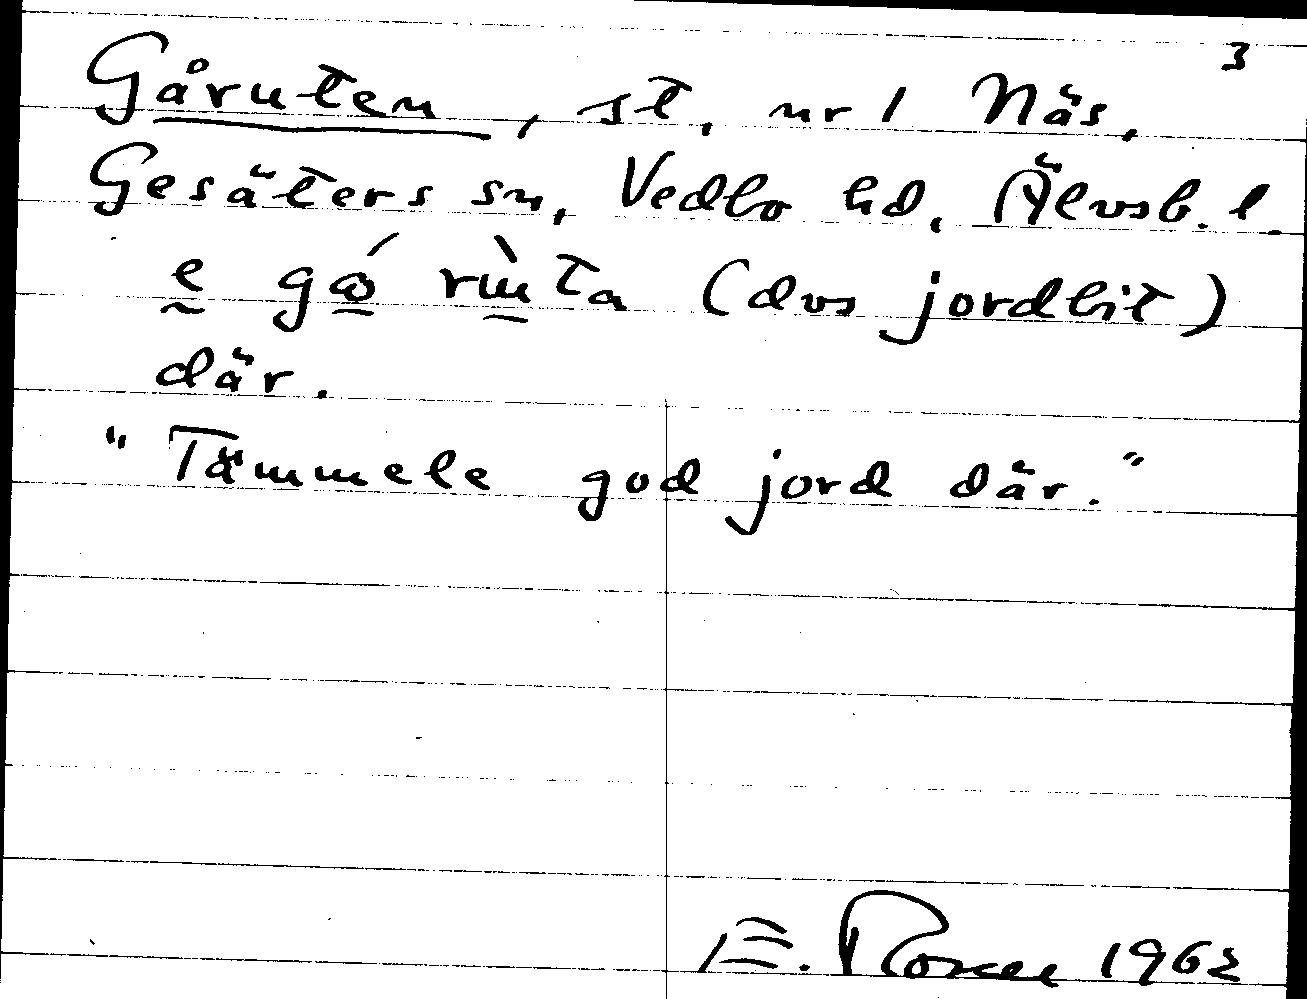 3
Gåruten, st, nr 1 Näs,
Gesäters sn, Vedbo hd, Älvsb. l.
e gå rɯta (dvs jordbit)
där.
"Tämmele god jord där."
E. 1962